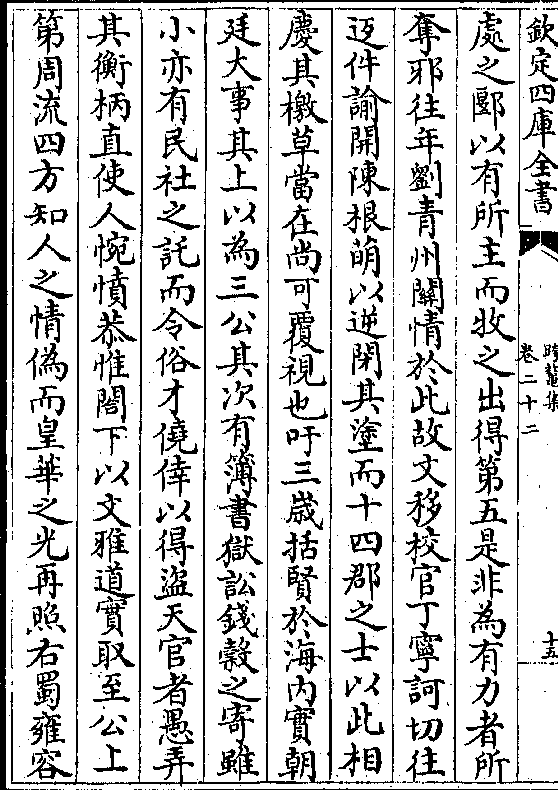 欽定四庫全書
卷二十二
十五
處之郾以有所主而牧之出得第五是非為有力者所
奪邪往年劉青州關情於此故文移校官丁寧訶切往
返件諭開陳根萌以逆閉其塗而十四郡之士以此相
慶其檄草當在尚可覆視也吁三歲括賢於海内實朝
廷大事其上以為三公其次有簿書獄訟錢穀之寄雖
小亦有民社之託而令俗才僥倖以得盜天官者愚弄
其衡柄直使人惋憤恭惟閤下以文雅道實取至公上
第周流四方知人之情偽而皇華之光再照右蜀雍容